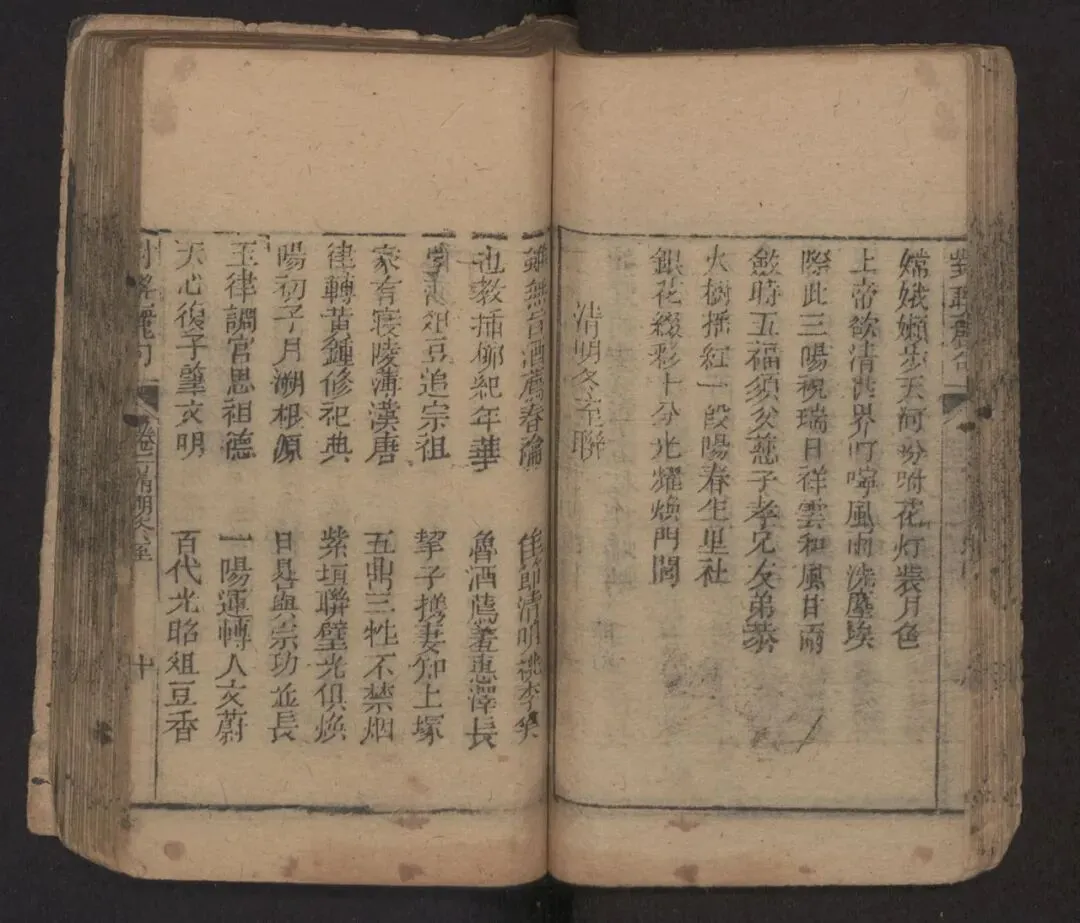 嫦娥嬾步天河吩咐花灯裝月色
上帝欲清世界叮嚀風雨洗塵埃
際此三陽視瑞日祥雲和風甘雨
斂時五福須父慈子孝兄友弟恭
火樹搖紅一段陽春生里社
銀花綴彩十分光耀煥門閭
清明冬至聯
雖無旨酒薦春 佳節清明桃李笑
也教插柳紀年華 魯酒薦羞惠澤長
俎豆追宗祖 挈子携妻知上塚
家有寝陵薄漢唐 五鼎三牲不禁烟
律轉黃鍾修祀典 紫垣聯璧光俱煥
陽初子月溯根源 日晷與宗功並長
玉律調宮思祖德 一陽運轉人文蔚
天心復子肇文明 百代光昭俎豆香
卷二 清明冬至 十